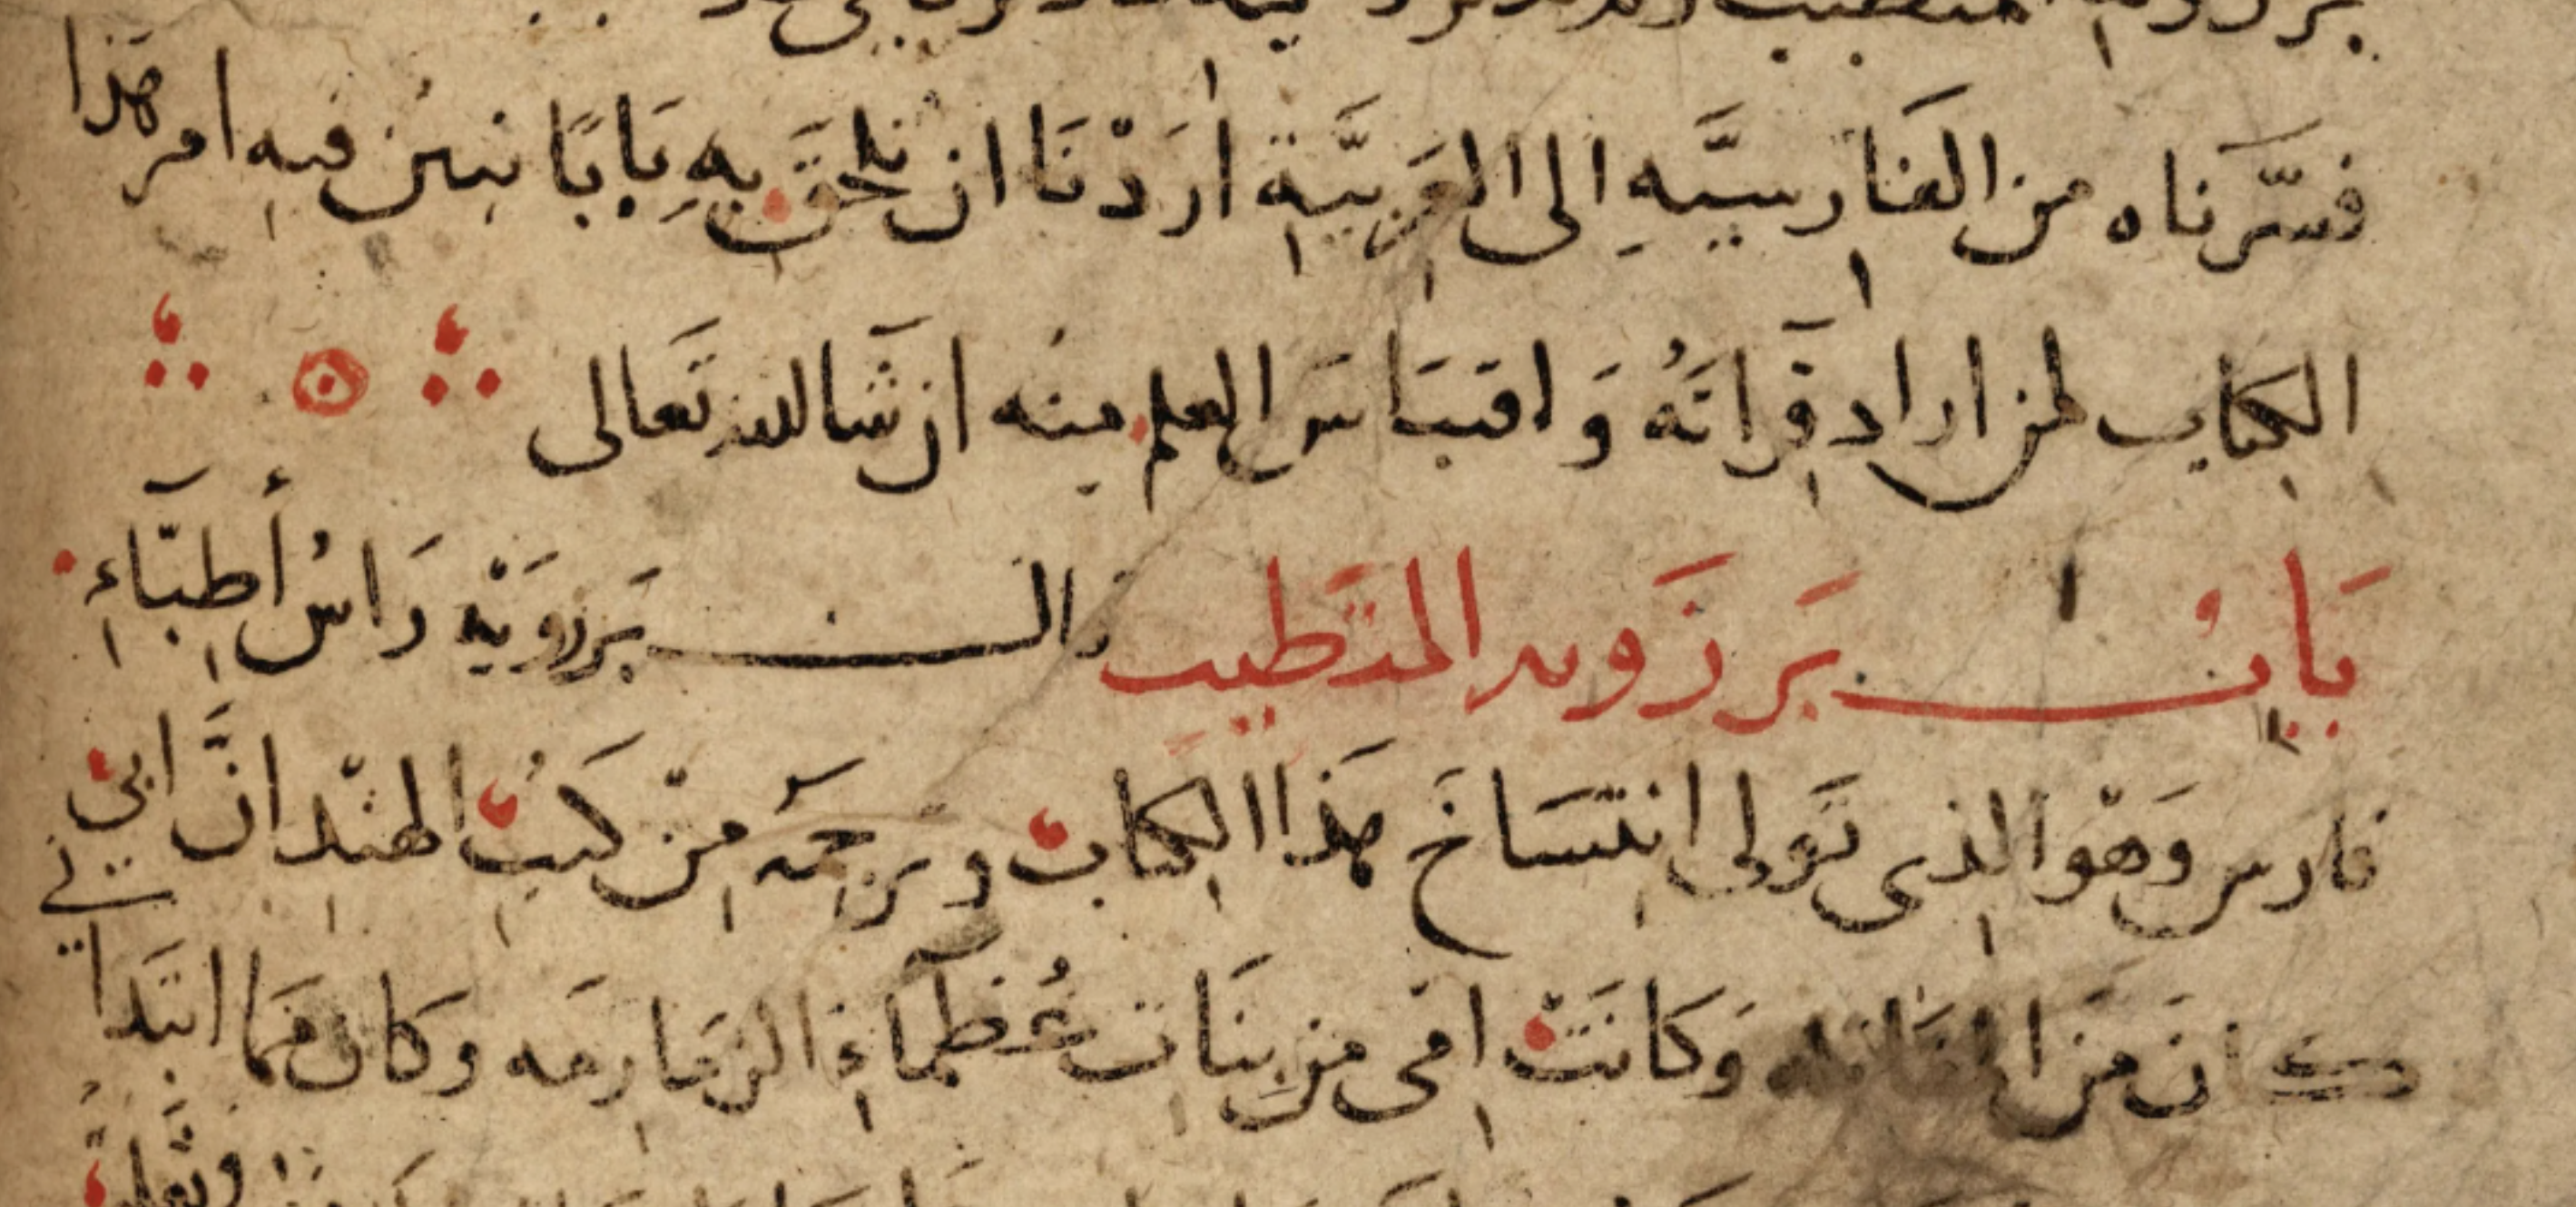 برزويه المتطبب
فسّرناه من الفارسيَّهِ الى العَرَبيَّة ارَدْنَا ان نلحقَ بِهِ بَابًا نبين فيه امر هذا
الكتاب لمن اراد قرآتَهُ وَاقتباسَ العلم مِنه ان شالله تَعالى
بَابُ بَرزَويه المتَطبب قال بَرزوَيْه رَاسُ أطِبّآءِ
فارس وَهْو الذى تَولى انتسَاخَ هَذا الكتاب وترجمَه مِنْ كتُبِ الهنْد انَّ ابى
كان مَن المقاتله وَكانَتْ امى من بنَات عُظمآءِ الزمَازمَه وَكان مَما ابتَدا